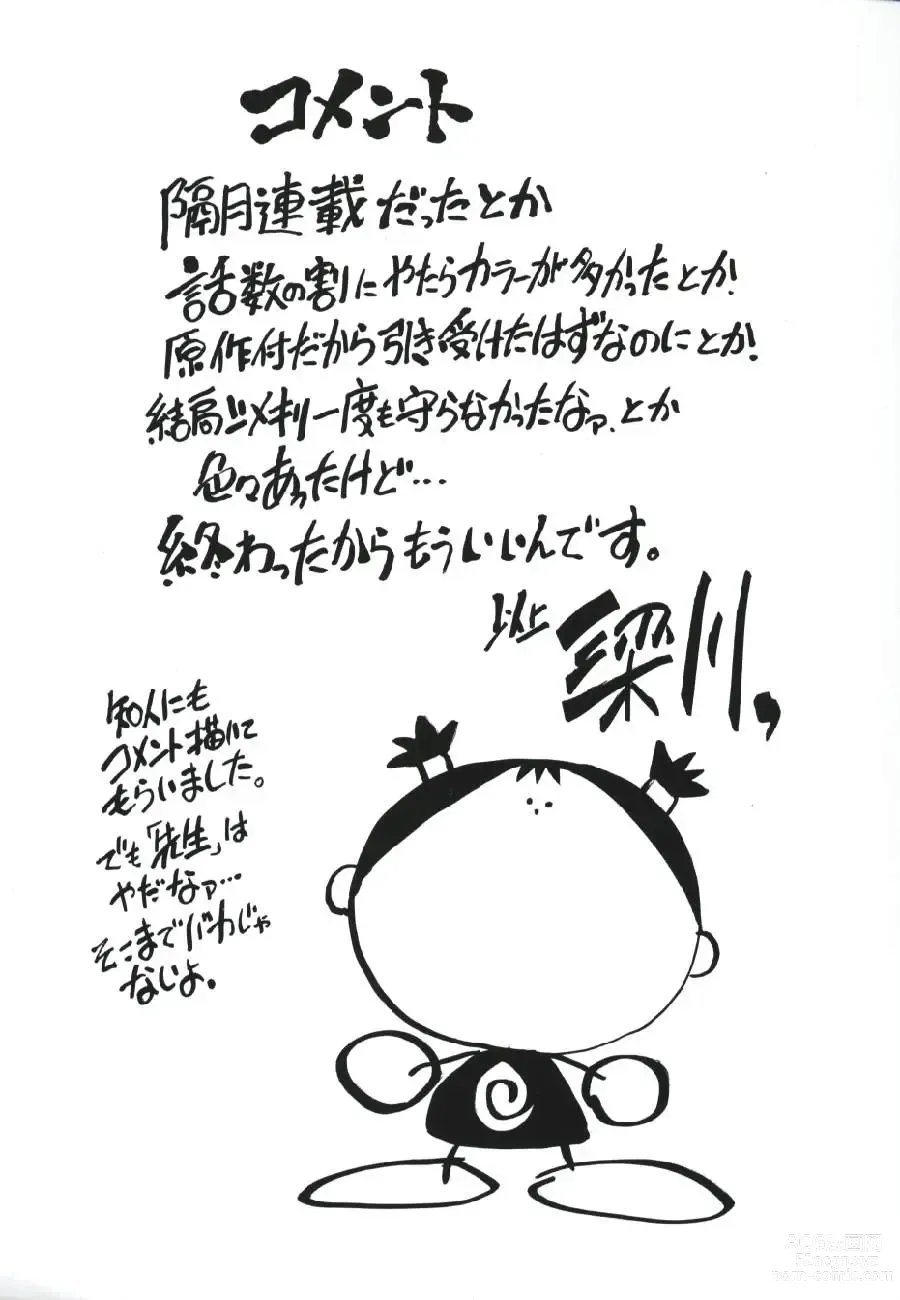 コメント
隔月連載だったとか
話数の割にやたらカラーが多かったとか!
原作付だから引き受けたはずなのにとか!
結局〆メキリ一度も守らなかったなァ、とか
色々あったけど…
終わったからもういいんです。
以上 深川,
知人にも
コメント描いて
もらいました。
でも「先生」は
やだなァ…
そこまでバカじゃ
ないよ。